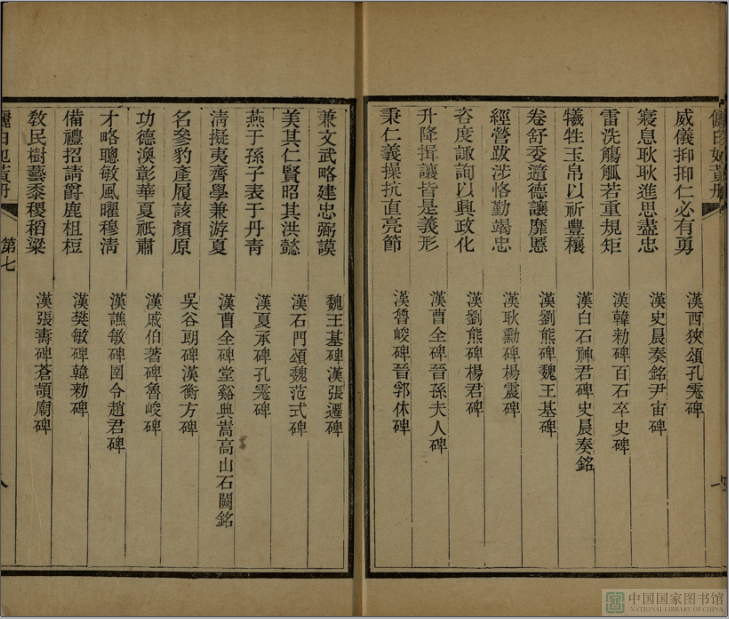 威儀抑抑仁必有勇　漢西狹頌孔宙碑
寢息耿耿進思盡忠　漢史晨奏銘尹宙碑
雷洗觴觚若重規矩　漢韓勑碑百石卒史碑
犧牲玉帛以祈豐穰　漢白石神君碑史晨奏銘
卷舒委遹德讓靡慝　漢劉熊碑魏王基碑
經營跋涉恪勤竭忠　漢耿勳碑楊震碑
咨度諏詢以興政化　漢劉熊碑楊君碑
升降揖讓皆是義形　漢曹全碑晉孫夫人碑
秉仁義操抗直亮節　漢魯峻碑晉郭休碑
兼文武略建忠弼謨　魏王基碑漢張遷碑
美其仁賢昭其洪懿　漢石門頌魏范式碑
燕于孫子表于丹青　漢夏承碑孔宙碑
淸擬夷齊學兼游夏　漢曹全碑堂谿典嵩高山石闕銘
名參豹產履該顏原　吳谷朗碑漢衡方碑
功德渙彰華夏祇肅　漢戚伯著碑魯峻碑
才略聰敏風曜穆淸　漢譙敏碑圉令趙君碑
備禮招請爵鹿柤梪　漢樊敏碑韓勑碑
敎民樹藝黍稷稻粱　漢張壽碑蒼頡廟碑
第七
八
中国国家图书馆
NATIONAL LIBRARY OF CHINA